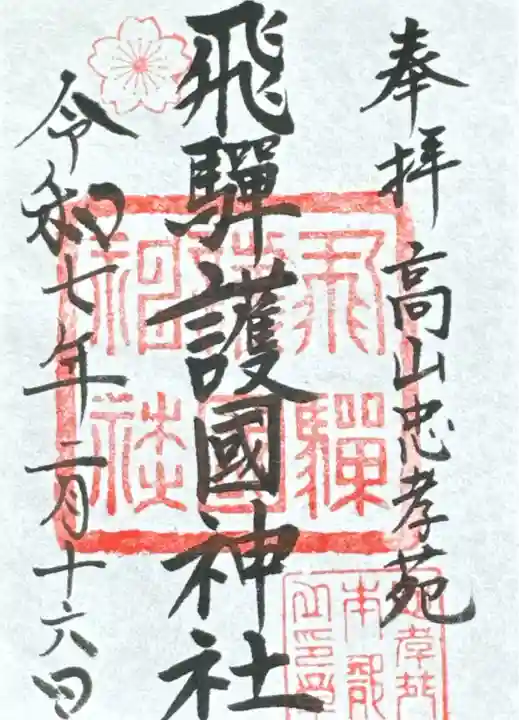 奉拝 高山忠孝苑
飛驒護國神社
令和七年二月十六日
飛驒護國神社